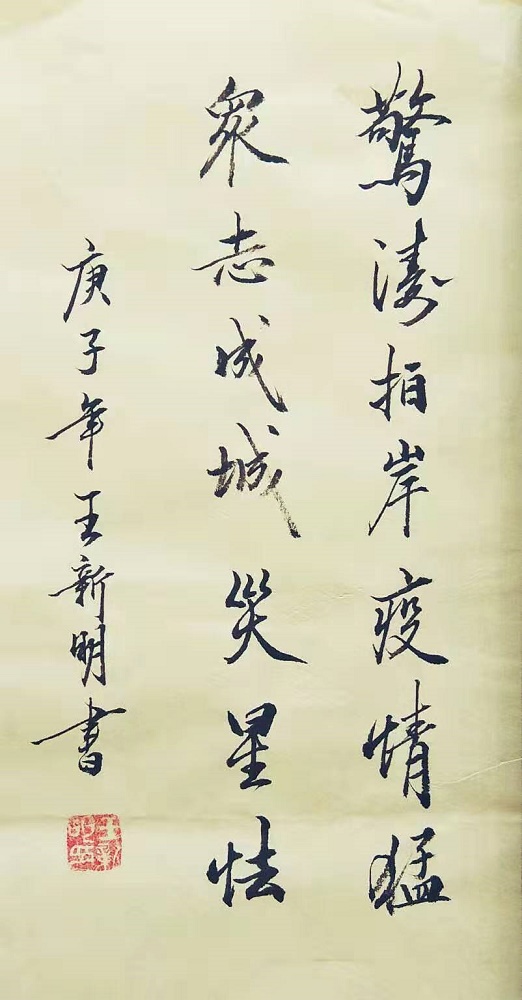 驚涛拍岸疫情猛
衆志成城災星怯
庚子年王新明書